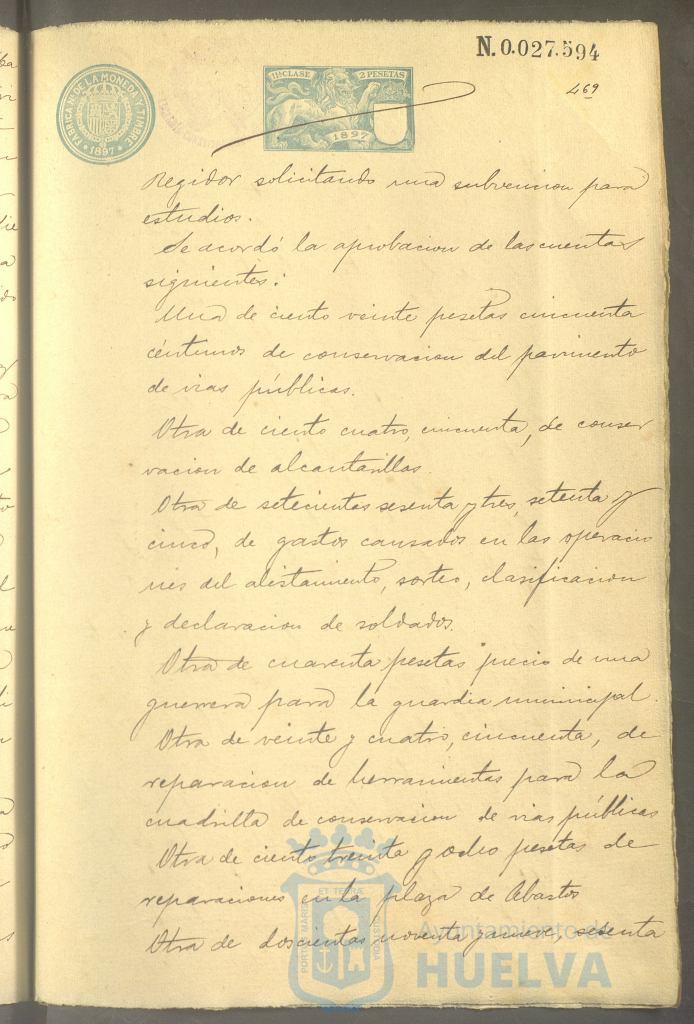 N.0.027.594
469
FABRICA NL. DE LA MONEDA Y TIMBRE
1897
11ª CLASE 2 PESETAS
1897
Regidor solicitando una subvencion para
estudios.
Se acordó la aprobacion de las cuentas
siguientes:
Una de ciento veinte pesetas cincuenta
céntimos de conservacion del pavimento
de vias públicas.
Otra de ciento cuatro, cincuenta, de conser
vacion de alcantarillas.
Otra de setecientas sesenta y tres, setenta y
cinco, de gastos causados en las operacio
nes del alistamiento, sorteo, clasificacion
y declaracion de soldados.
Otra de cuarenta pesetas precio de una
guerrera para la guardia municipal.
Otra de veinte y cuatro, cincuenta, de
reparacion de herramientas para la
cuadrilla de conservacion de vias públicas
Otra de ciento treinta y ocho pesetas de
reparaciones en la plaza de Abastos
Otra de doscientas noventa y nueve, sesenta
PORTUS MARIS ET TERRÆ CUSTODIA
Ayuntamiento de
HUELVA